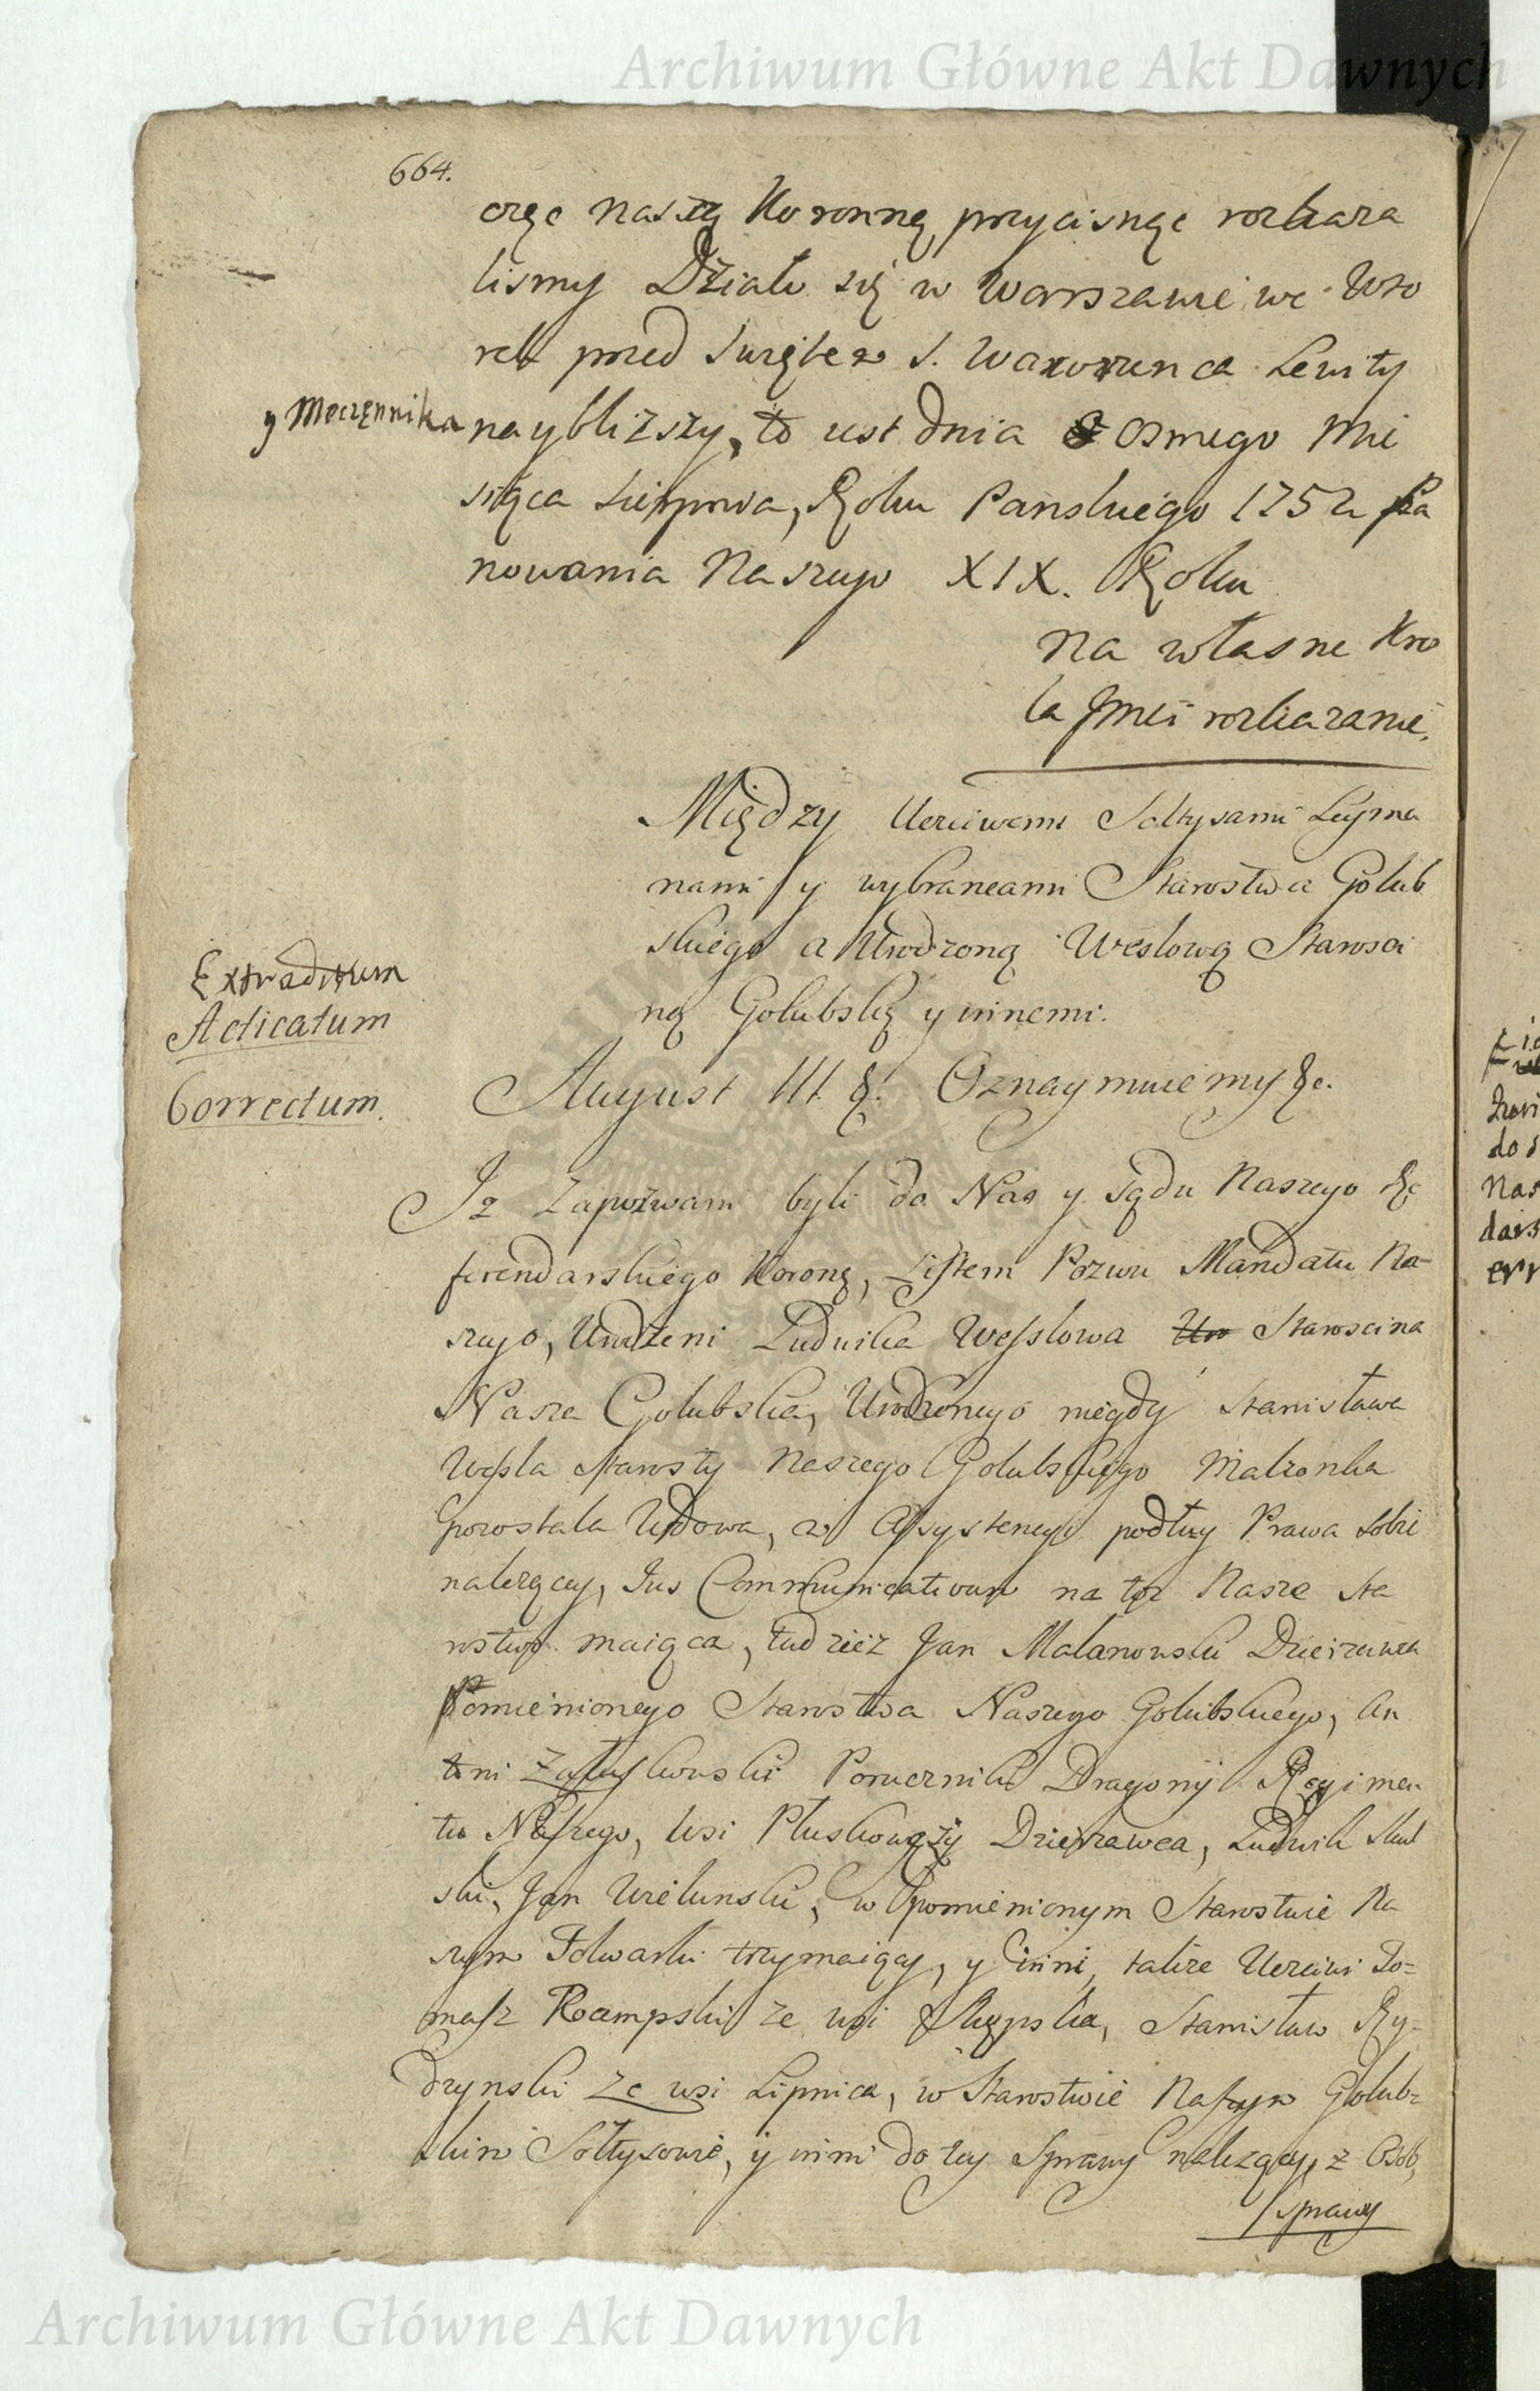 Archiwum Główne Akt Dawnych
664.
częc naszę Koronnę przycisnąc rozkaza
lismy Działo się w Warszawie we Wto
rek przed Swiętem S. Wawrzenca Lewity
y Męczennika
naybliższy, to iest dnia Osmego Mie
siąca Sierpnia, Roku Panskiego 1752 Pa
nowania Naszego XIX. Roku
Na własne Kro
la Jmci rozkazanie.
Między Ucciwemi Sołtysami Leyma
nami y wybrancami Starostwa Golub
skiego a Urodzoną Weslową Starosci
ną Golubską y innemi.
Extraditum
Acticatum
Correctum.
August III. &. Oznaymuiemy &c.
Iz Zapozwani byli do Nas y Sądu Naszego Re
ferendarskiego Koronę, Listem Pozwu Mandatu Na-
szego, Urodzeni Ludwika Wesslowa Staroscina
Nasza Golubska, Urodzonego niegdy Stanisława
Wessla Starosty Naszego Golubskiego Małzonka
pozostała Wdowa, w Assystencyi podług Prawa sobie
nalezącey, Ius Communicativum na toz Nasze Sta
rostwo maiąca, tudziez Jan Malanowski Dzierzawca
Pomienionego Starostwa Naszego Golubskiego, An
toni Porucznik Dragonij Regimen
tu Naszego, wsi Pluskowęzy Dzierzawca, Ludwik
ski, Jan Wielunski, w pomienionym Starostwie Na
szym Folwarki trzymaiący, y inni, takze Ucciwi To=
masz Kampski ze wsi Stanisław Ry-
drynski ze wsi Lipnica, w Starostwie Naszym Golub=
skim Sołtysowie, y inni do tey Sprawy nalezący, z Osob,
sprawy
Archiwum Główne Akt Dawnych